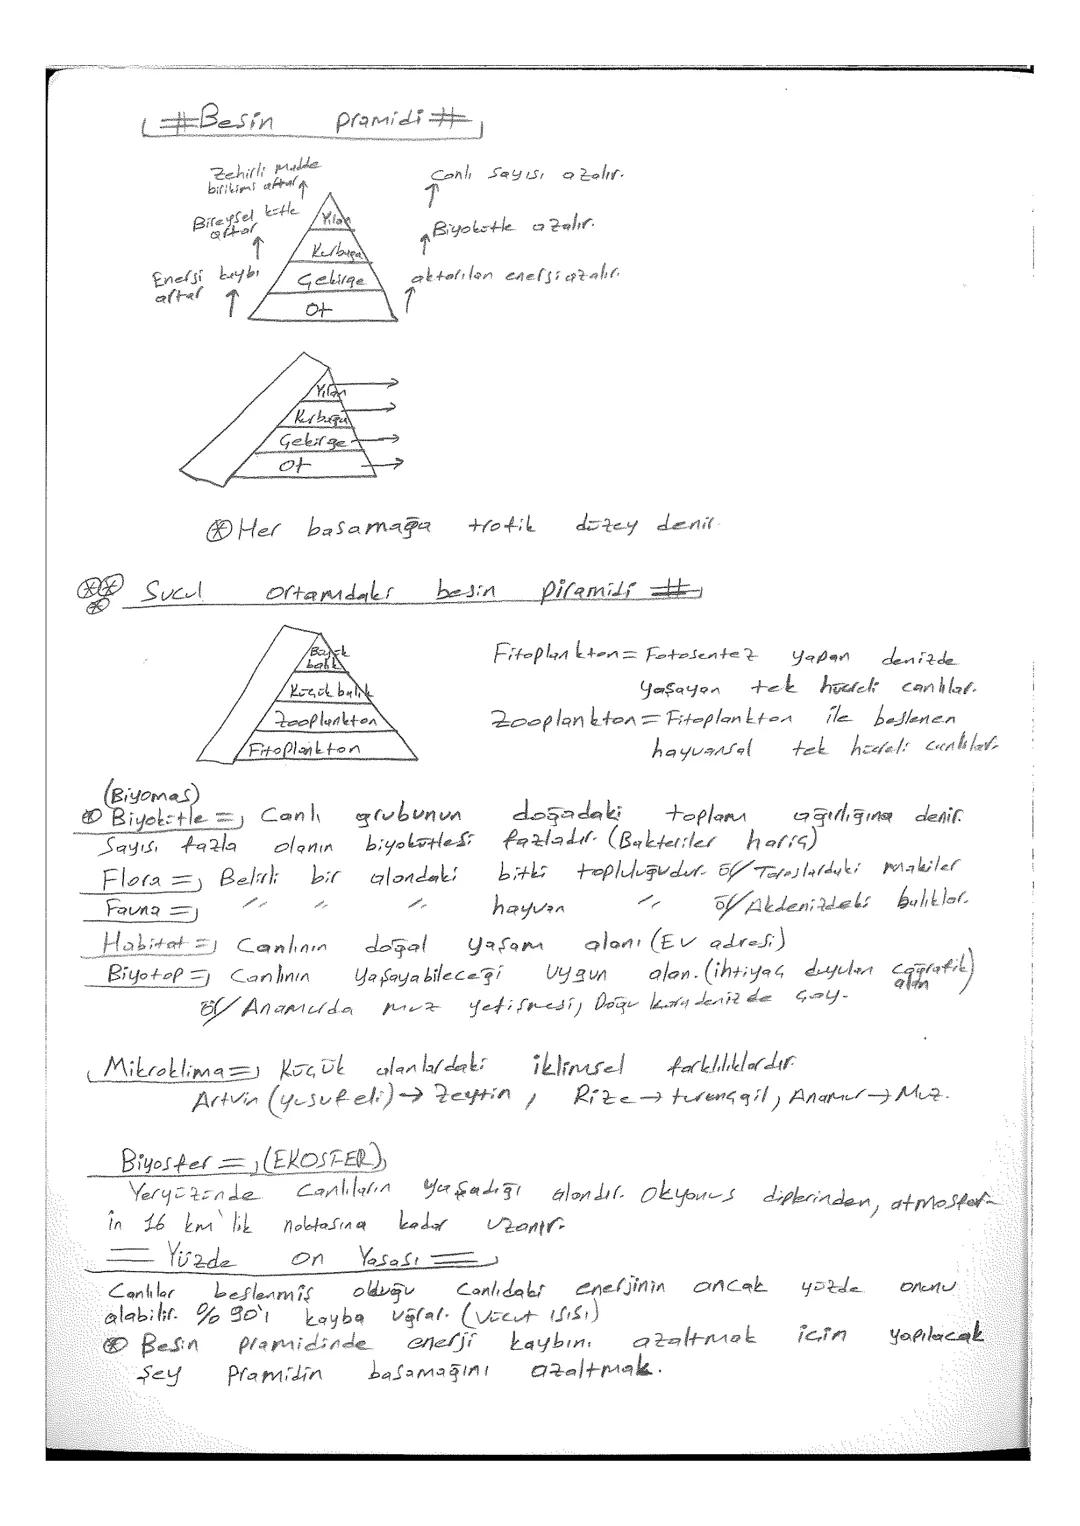 # Besin pramidi #
Zehirli madde
birikimi artar
Canlı sayısı azalır.
Bireysel kütle
artar
Biyokütle azalır.
Enerji kaybı
artar
aktarılan enerji azalır.
Yılan
Kurbağa
Çekirge
Ot
Yılan
Kurbağa
Çekirge
Ot
Her basamağa trofik düzey denir.
Sucul ortamdaki besin piramidi #
Büyük
balık
Küçük balık
Zooplankton
Fitoplankton
Fitoplankton = Fotosentez yapan denizde
yaşayan tek hücreli canlılar.
Zooplankton = Fitoplankton ile beslenen
hayvansal tek hücreli canlılar.
(Biyomas)
Biyokütle => Canlı grubunun doğadaki toplam ağırlığına denir.
Sayısı fazla olanın biyokütlesi fazladır. (Bakteriler hariç)
Flora => Belirli bir alandaki bitki topluluğudur. ör/ Toroslardaki makiler
Fauna => " " " hayvan " ör/ Akdenizdeki balıklar.
Habitat => Canlının doğal yaşam alanı (Ev adresi)
Biyotop => Canlının yaşayabileceği uygun alan. (ihtiyaç duyulan coğrafik)
alan
ör/ Anamurda muz yetişmesi, Doğu karadenizde çay.
Mikroklima => Küçük alanlardaki iklimsel farklılıklardır.
Artvin (yusufeli) → Zeytin, Rize → turunçgil, Anamur → Muz.
Biyosfer => (EKOSFER)
Yeryüzünde Canlıların yaşadığı alandır. Okyanus diplerinden, atmosfer-
in 16 km'lik noktasına kadar uzanır.
= Yüzde on Yasası =
Canlılar beslenmiş olduğu canlıdaki enerjinin ancak yüzde onunu
alabilir. % 90'ı kayba uğrar. (Vücut ısısı)
Besin pramidinde enerji kaybını azaltmak için yapılacak
şey pramidin basamağını azaltmak.